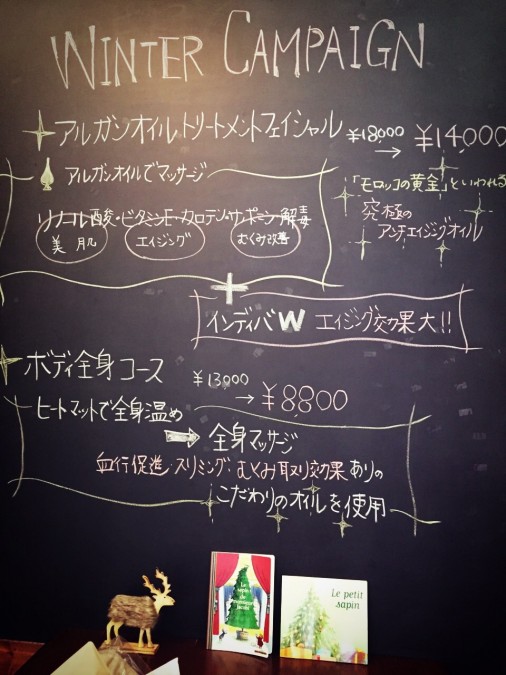 WINTER CAMPAIGN
アルガンオイルトリートメントフェイシャル ¥18000 → ¥14000
アルガンオイルでマッサージ
「モロッコの黄金」といわれる
究極の
アンチエイジングオイル
リノール酸・ビタミンE・カロテン・サポーニン 解毒
美肌 エイジング むくみ改善
+
インディバW エイジング効果大!!
ボディ全身コース ¥13000 → ¥8800
ヒートマットで全身温め
⇒ 全身マッサージ
血行促進・スリミング・むくみ取り効果ありの
こだわりのオイルを使用
Le
sapin
de
Le petit
sapin